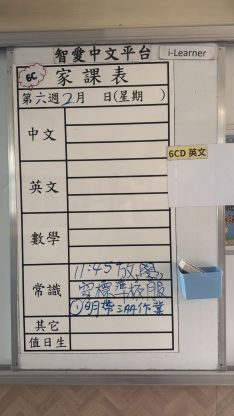 智愛中文平台
i-Learner
6C
家課表
第六週2月 日(星期 )
中文
6CD 英文
英文
數學
11:45放學
常識
穿標準校服
①明帶三冊作業
其它
值日生